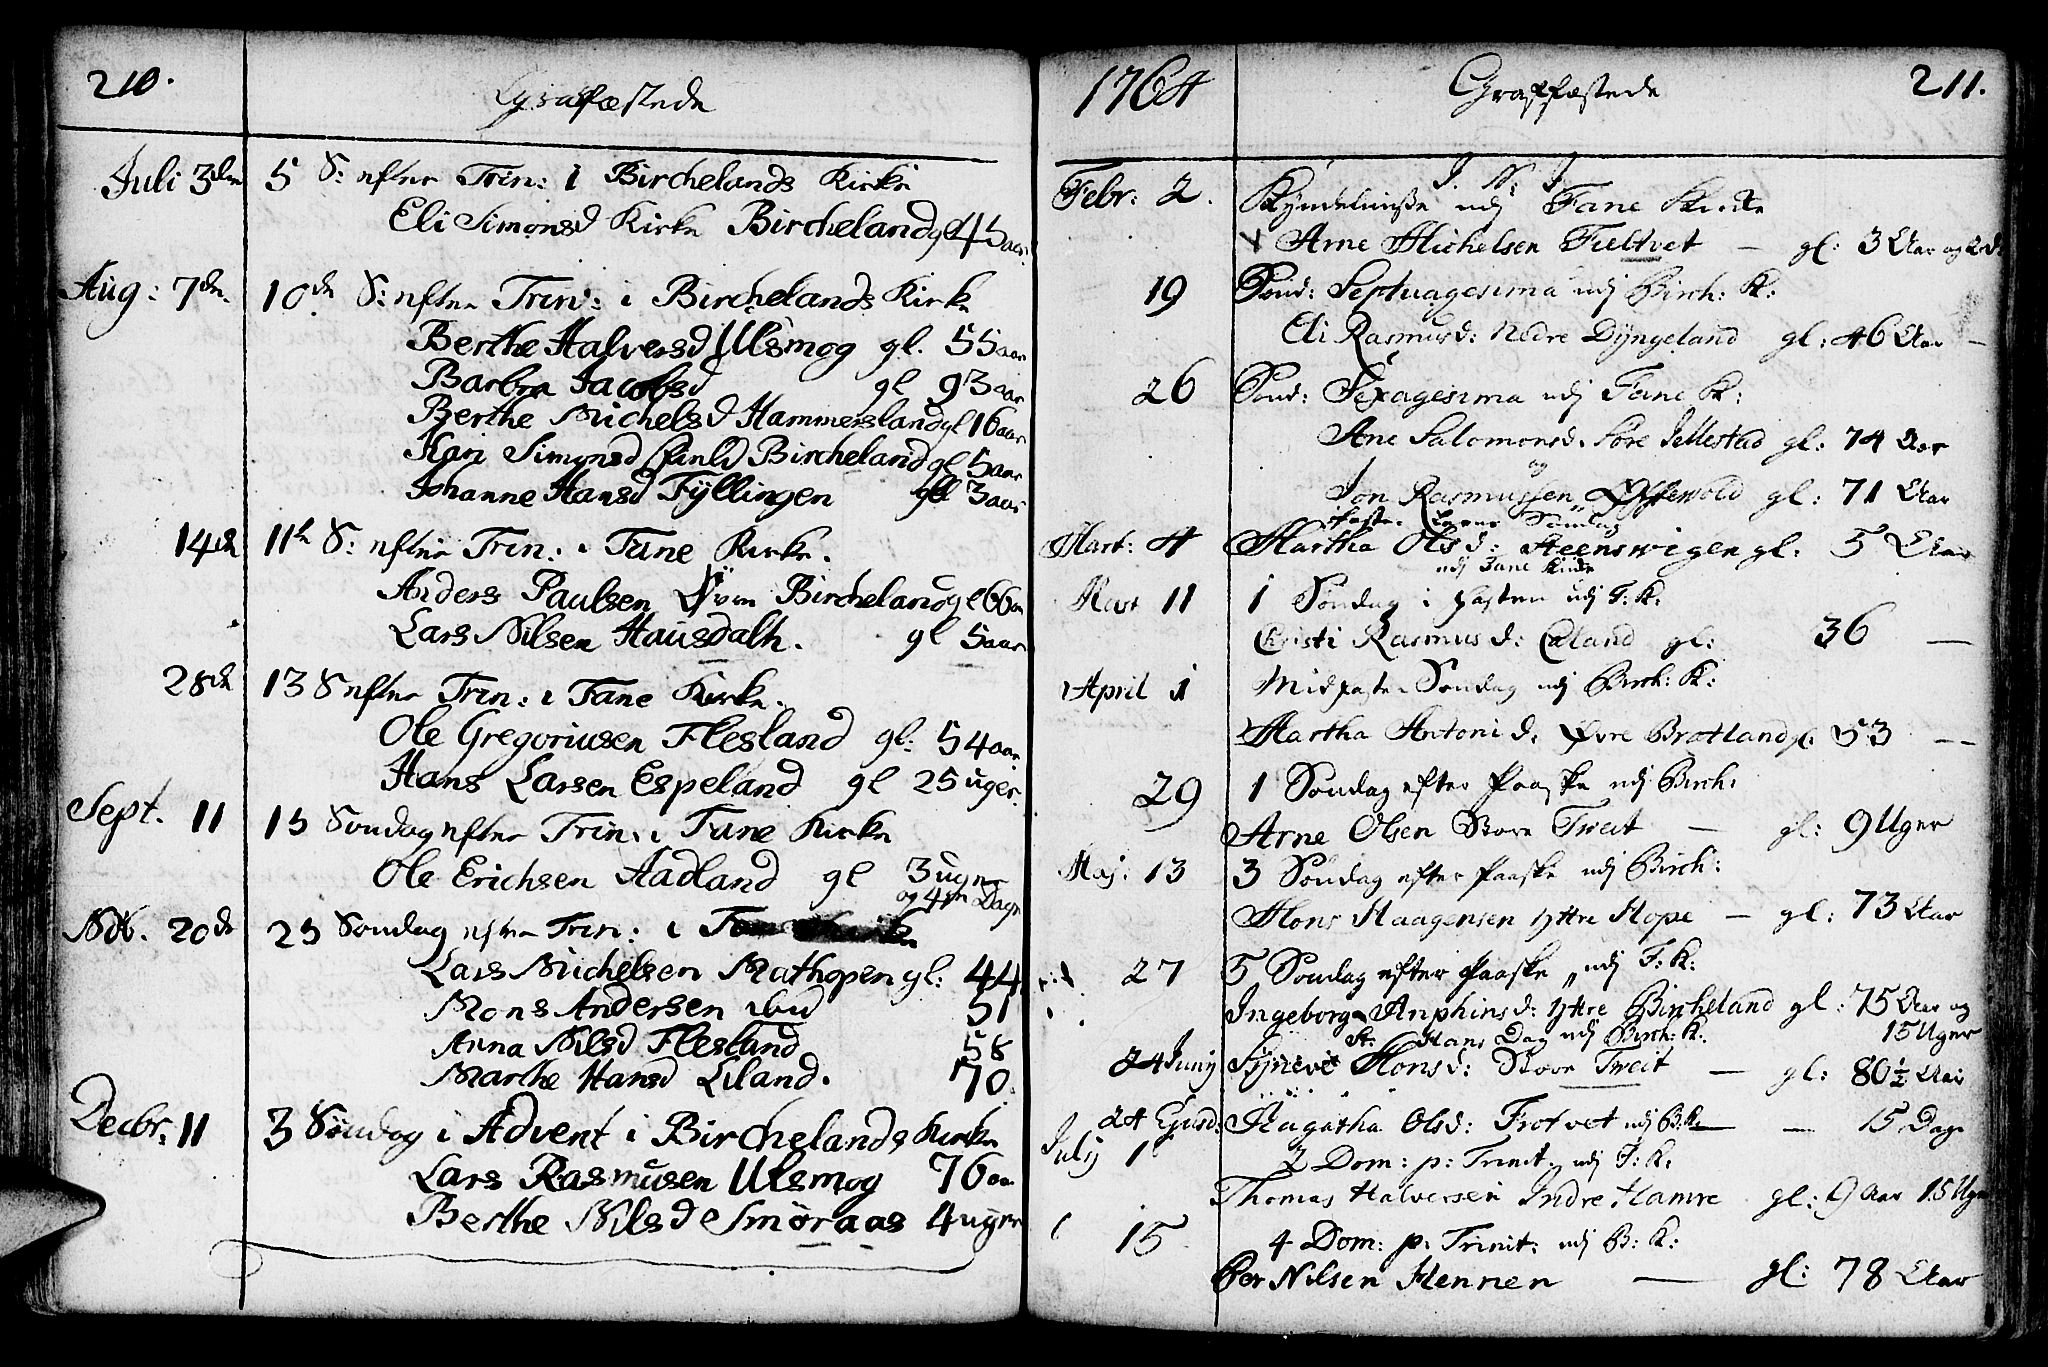 210.
Graffæstede
Juli 3den 5 S: efter Trin: i Birchelands Kirke
Eli Simonsd Kirke Bircheland gl 45 aar.
Aug: 7de. 10de S: efter Trin: i Birchelands Kirke
Berthe Halversd Ulsmog gl. 55 aar
Barbra Jacobsd gl 93 aar
Berthe Michelsd Hammersland gl 16 aar
Kari Simonsd Bircheland gl 5 aar
Johanne Hansd Fyllingen gl 3 aar
14de 11te S: efter Trin: i Fane Kirke.
Anders Paulsen Øvre Bircheland gl 66 aar
Lars Nilsen Hausdalh. gl 5 aar
28de 13 S efter Trin: i Fane Kirke.
Ole Gregoriusen Flesland gl: 54 aar.
Hans Larsen Espeland gl 25 uger.
Sept. 11 15 Søndag efter Trin: i Fane Kirke
Ole Erichsen Aadland gl 3 uger
og 4re Dage
Nov. 20de 25 Søndag efter Trin: i
Lars Michelsen Mathopen gl: 44
Mons Andersen ibid 51
Anna Nilsd Flesland 58
Marthe Hansd Liland. 70.
Decbr. 11 3 Søndag i Advent i Birchelands Kirke
Lars Rasmusen Ulsmog 76 aar
Berthe Nilsd Smøraas 4 uger
1764 Graffæstede 211.
J. N. J.
Febr: 2. Kyndelmisse udj Fane Kirke
Arne Michelsen Tveltvet — gl: 3 Aar og
19 Sønd: Septuagesima udj Birch: K:
Eli Rasmusd: Nedre Dyngeland gl: 46 Aar —
26 Sønd: Sexagesima udj Fane K:
Ane Salomonsd. Søre Jellestad gl: 74 Aar
og
Jon Rasmussen gl: 71 Aar
Faste Søndag
Mart: 4 Martha Olsd: Steenswigen gl: 5 Aar
udj Fane Kirke
Mart 11 1 Søndag i Fasten udj F: K:
Christi Rasmusd: gl: 36 —
April 1 Midfaste Søndag udj Birch: K:
Martha Antonid. Øvre Bratland gl. 53 —
29 1 Søndag efter Paaske udj Birch:
Arne Olsen Store Tveit — gl: 9 Uger
Maj: 13 3 Søndag efter Paaske udj Birch:
Mons Haagensen yttre Hope — gl: 73 Aar
27 5 Søndag efter Paaske udj F: K:
Ingeborg Anphinsd: yttre Birkeland gl: 75 Aar og
15 Uger
St. Hans Dag udj Birch: K:
24 Junij Synevè Monsd: Store Tveit — gl: 80½ Aar
24 Ejusd: Aagatha Olsd: Trotvet udj B: K: — 15 Dage
July 1 2 Dom: p: Trinit: udj F: K:
Thomas Halversen Indre Hamre gl: 9 Aar 15 Uger
15 4 Dom: p: Trinit: udj B: K:
Per Nilsen Hennen — gl: 78 Aar